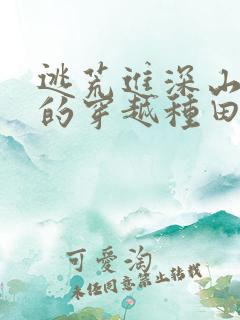 逃荒進深山
的穿越種田
可愛淘
未任同意禁止转载